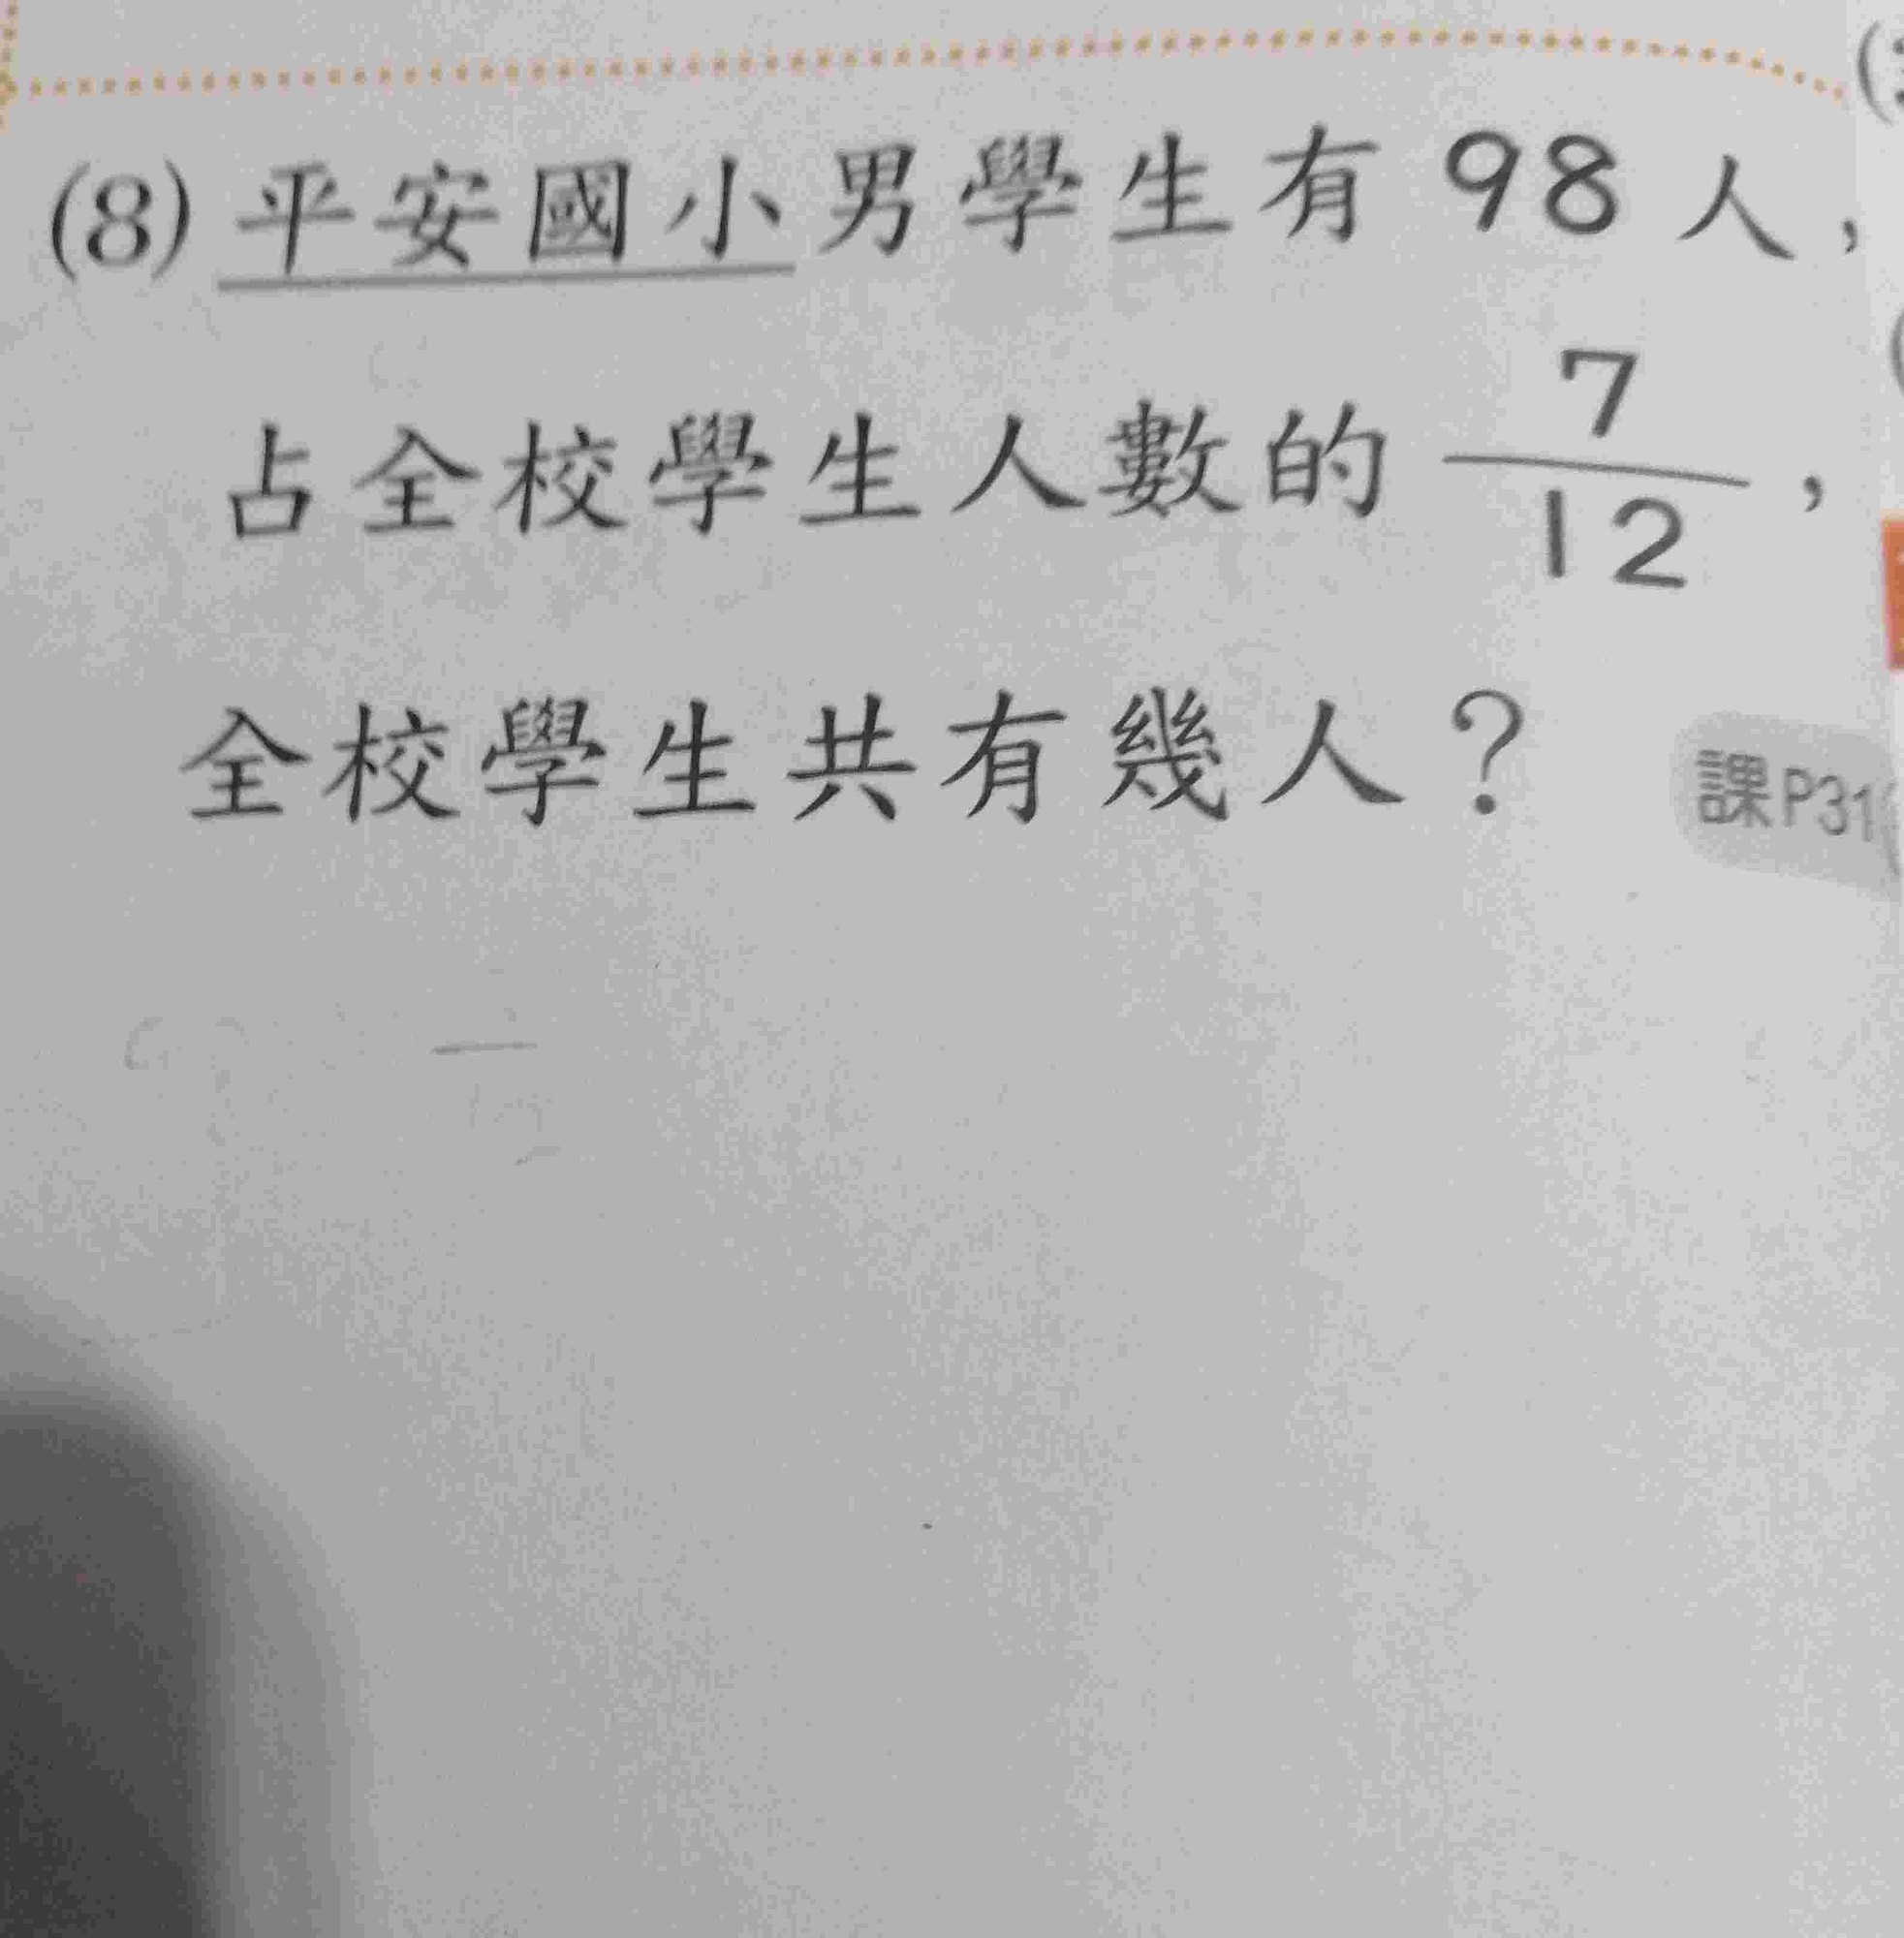 (8) 平安國小男學生有 98 人，
占全校學生人數的 7/12，
全校學生共有幾人？
課P31